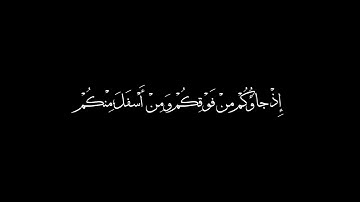 إِذْ جَاؤُكُمْ مِنْ فَوْقِكُمْ وَمِنْ أَسْفَلَ مِنْكُمْ